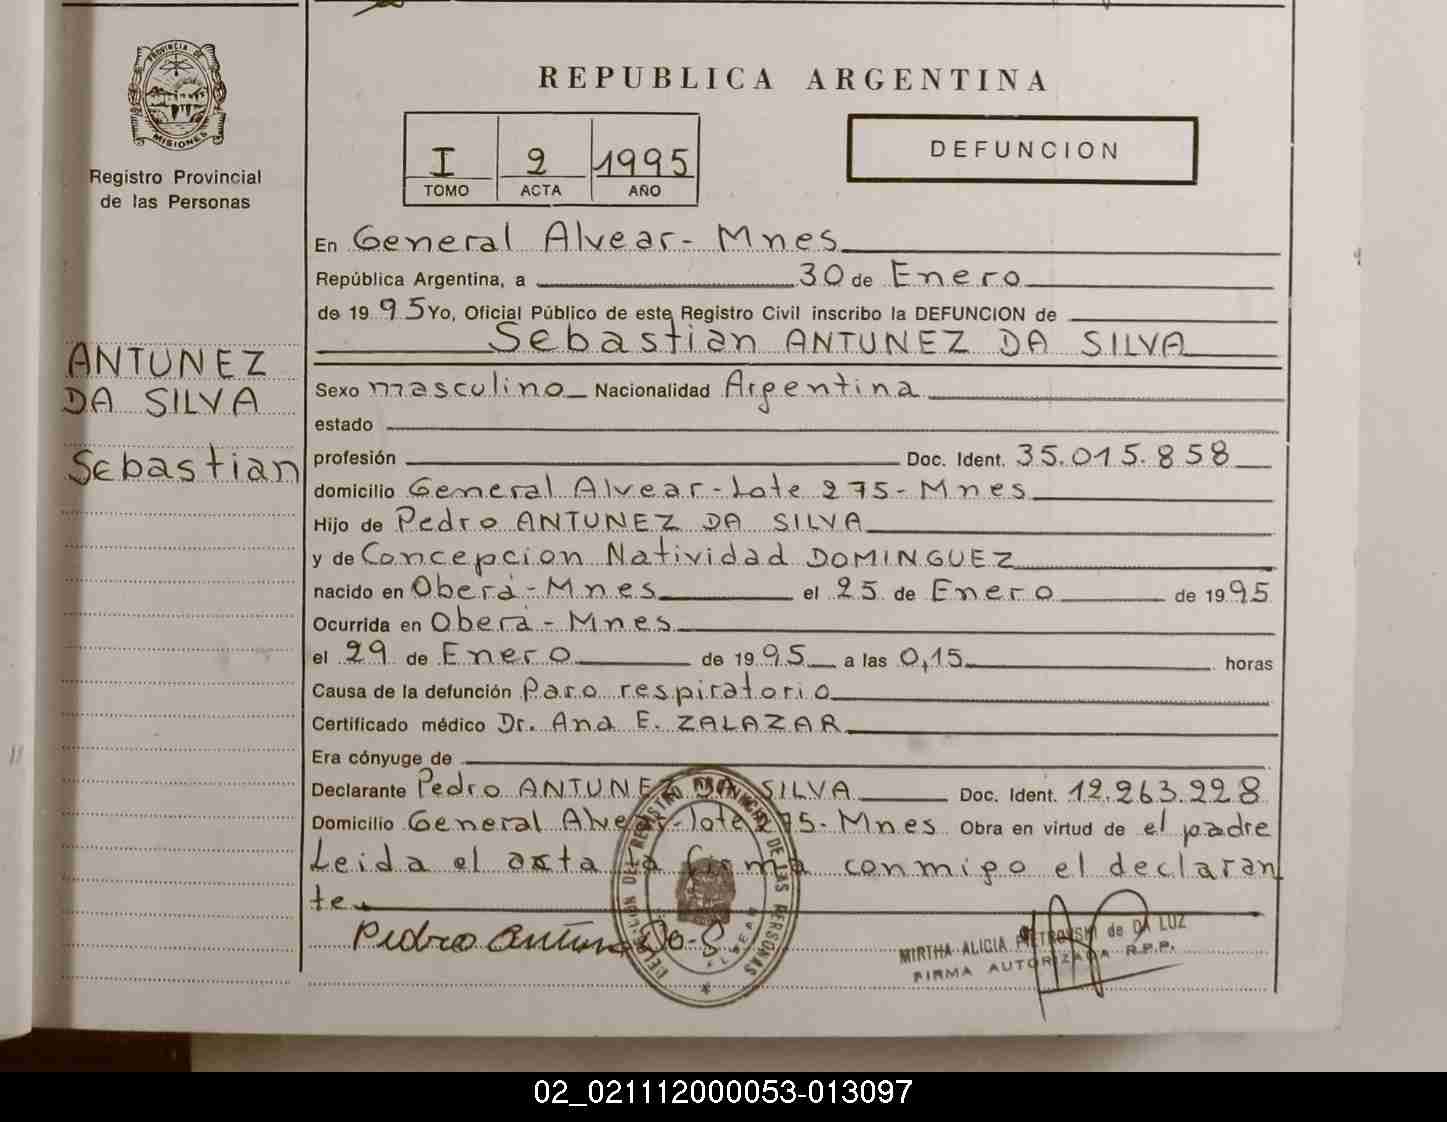 REPUBLICA ARGENTINA
PROVINCIA DE
MISIONES
Registro Provincial
de las Personas
I 2 1995
TOMO ACTA AÑO
DEFUNCION
En General Alvear - Mnes
República Argentina, a 30 de Enero
de 1995 Yo, Oficial Público de este Registro Civil inscribo la DEFUNCION de
Sebastian ANTUNEZ DA SILVA
ANTUNEZ
DA SILVA
Sebastian
Sexo masculino Nacionalidad Argentina
estado
profesión Doc. Ident. 35.015.858
domicilio General Alvear - Lote 275 - Mnes
Hijo de Pedro ANTUNEZ DA SILVA
y de Concepcion Natividad DOMINGUEZ
nacido en Oberá - Mnes el 25 de Enero de 1995
Ocurrida en Oberá - Mnes
el 29 de Enero de 1995 a las 0,15 horas
Causa de la defunción Paro respiratorio
Certificado médico Dr. Ana E. ZALAZAR
Era cónyuge de
Declarante Pedro ANTUNEZ DA SILVA Doc. Ident. 12.263.228
Domicilio General Alvear - lote 275 - Mnes Obra en virtud de el padre
Leida el acta la firma conmigo el declaran
te
Pedro Antunez Da S.
DEL REGISTRO PROVINCIAL DE LAS PERSONAS
MIRTHA ALICIA PIETROWSKI de DA LUZ
FIRMA AUTORIZADA R.P.P.
02_021112000053-013097